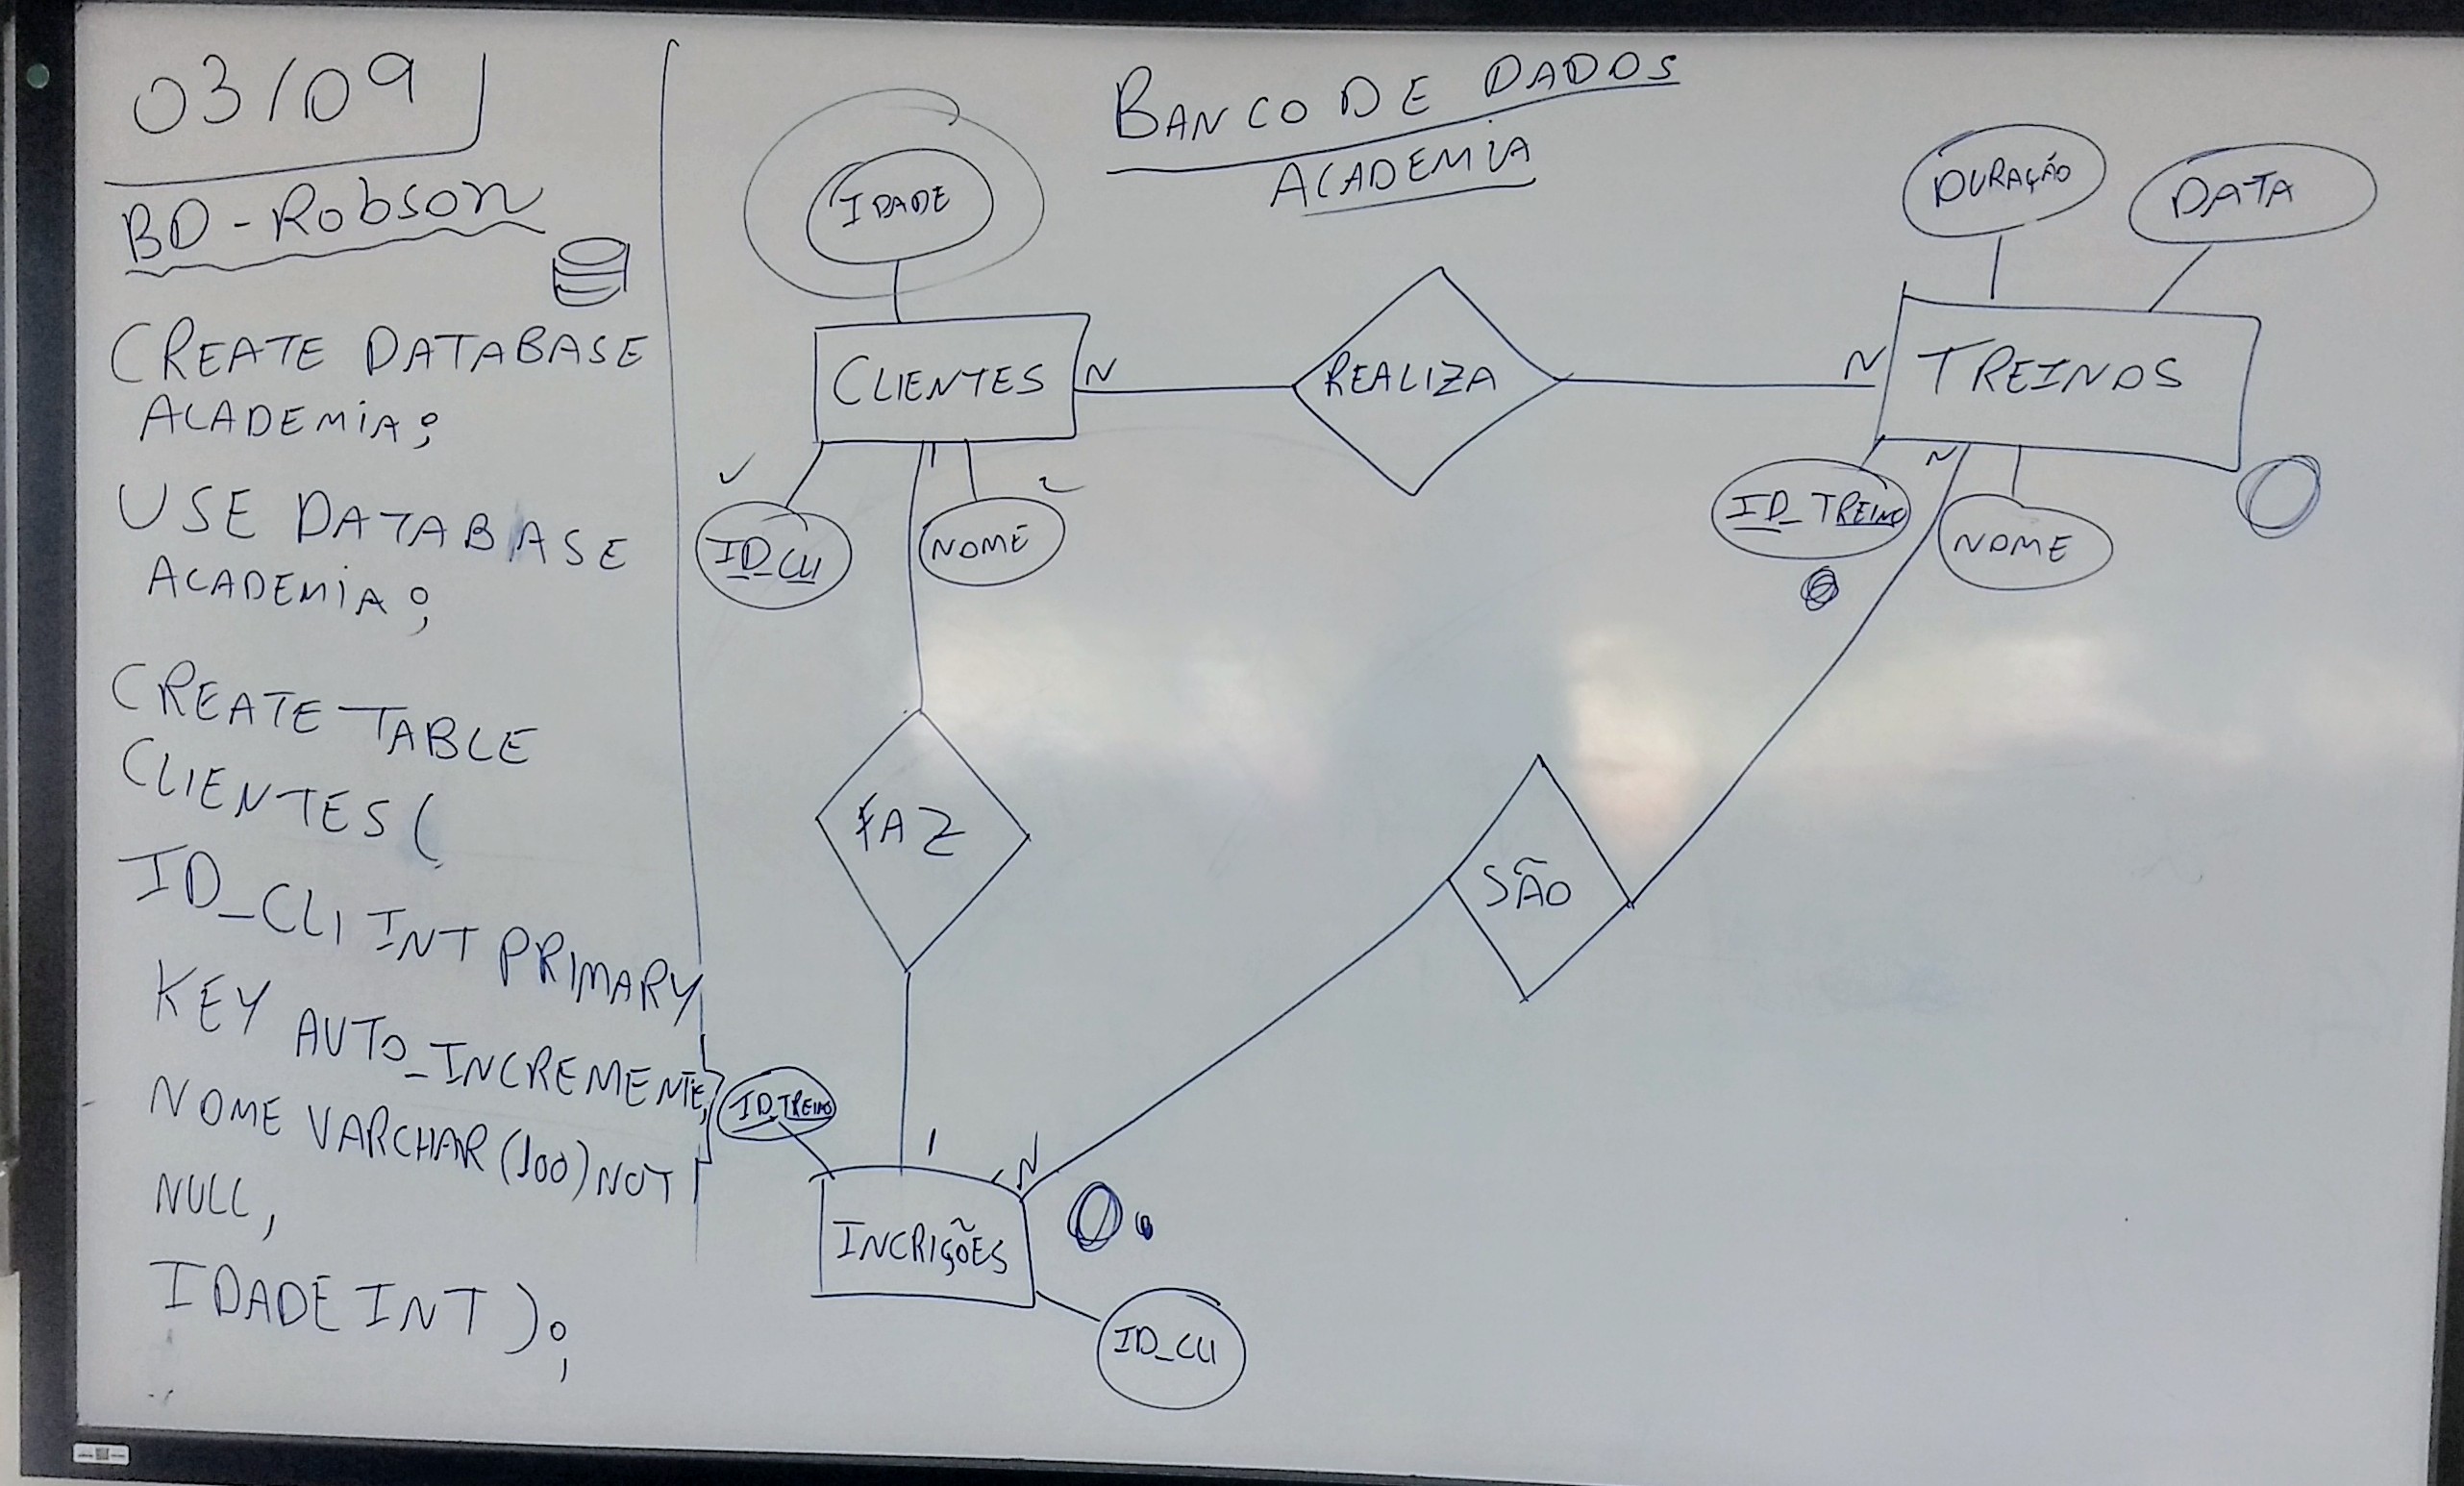 03/09
BD-Robson
CREATE DATABASE
ACADEMIA;
USE DATABASE
ACADEMIA;
CREATE TABLE
CLIENTES (
ID_CLI INT PRIMARY
KEY AUTO_INCREMENTE,
NOME VARCHAR (100) NOT
NULL,
IDADE INT );
BANCO DE DADOS
ACADEMIA
IDADE
DURAÇÃO
DATA
CLIENTES
N
REALIZA
N
TREINOS
1
N
ID_CLI
NOME
ID_TREINO
NOME
FAZ
SÃO
ID_TREINO
1
N
INCRIÇÕES
ID_CLI